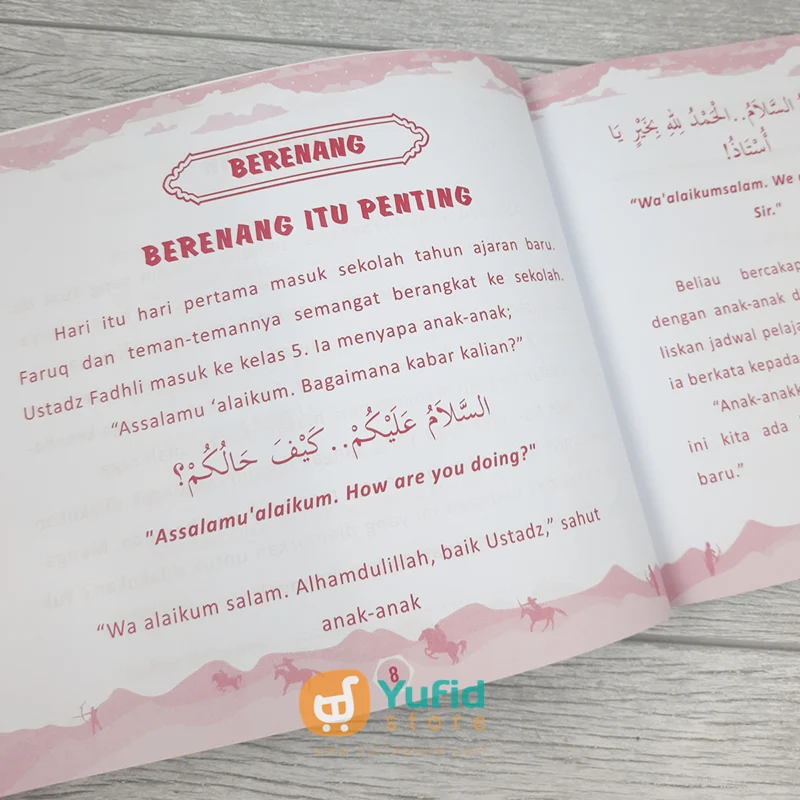 BERENANG
BERENANG ITU PENTING
Hari itu hari pertama masuk sekolah tahun ajaran baru.
Faruq dan teman-temannya semangat berangkat ke sekolah.
Ustadz Fadhli masuk ke kelas 5. Ia menyapa anak-anak;
“Assalamu ‘alaikum. Bagaimana kabar kalian?”
السَّلاَمُ عَلَيْكُمْ.. كَيْفَ حَالُكُمْ؟
"Assalamu'alaikum. How are you doing?"
“Wa alaikum salam. Alhamdulillah, baik Ustadz,” sahut
anak-anak
8
السَّلاَمُ..الْحَمْدُ لِلَّهِ بِخَيْرٍ يَا
أُسْتَاذُ!
“Wa'alaikumsalam. We
Sir.”
Beliau bercakap
dengan anak-anak
liskan jadwal pelaja
ia berkata kepada
“Anak-anakk
ini kita ada
baru.”
Yufid
store